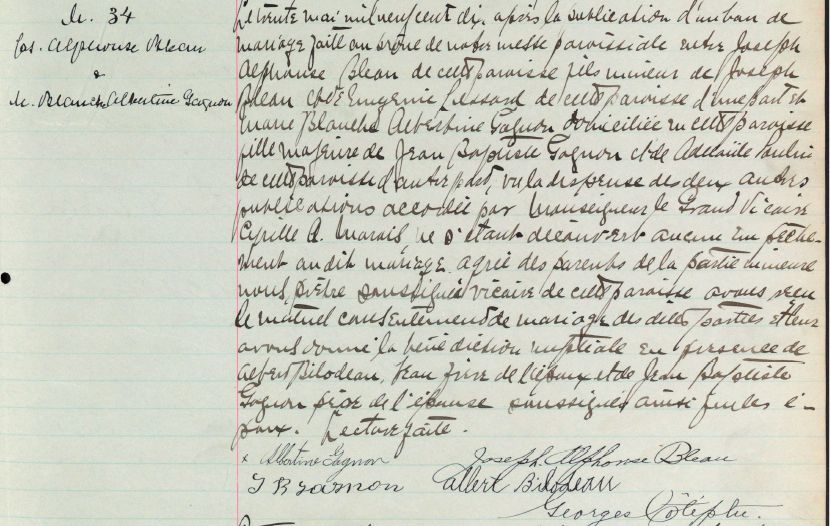 M. 34
Jos. Alphonse Bleau
&
M. Blanche Albertine Gagnon
Le trente mai mil neuf cent dix, après la publication d'un ban de
mariage faite au prône de notre messe paroissiale entre Joseph
Alphonse Bleau de cette paroisse fils mineur de Joseph
Bleau et d'Eugénie Lessard de cette paroisse d'une part et
Marie Blanche Albertine Gagnon domiciliée en cette paroisse
fille majeure de Jean Baptiste Gagnon et de Adelaïde Poulin
de cette paroisse d'autre part, vu la dispense des deux autres
publications accordée par Monseigneur le Grand Vicaire
Cyrille A. Marois, ne s'étant découvert aucun empêche-
ment au dit mariage, agrée des parents de la partie mineure
nous, prêtre soussigné vicaire de cette paroisse avons reçu
le mutuel consentement de mariage des dites parties et leur
avons donné la bénédiction nuptiale en présence de
Albert Bilodeau, beau frère de l'époux et de Jean Baptiste
Gagnon père de l'épouse soussignés ainsi que les é-
poux. Lecture faite.
x Albertine Gagnon Joseph Alphonse Bleau
J B Gagnon Albert Bilodeau
Georges Côté ptre.